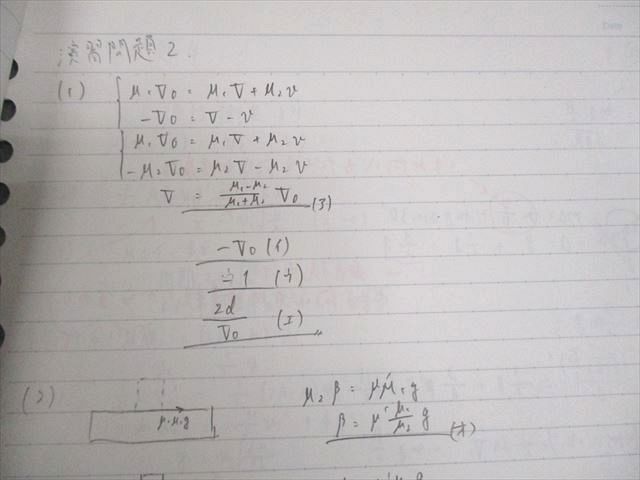 演習問題2.
(1)
M₁V₀ = M₁V + M₂v
-V₀ = V - v
M₁V₀ = M₁V + M₂v
-M₂V₀ = M₂V - M₂v
V = \frac{M₁-M₂}{M₁+M₂} V₀ (ア)
-V₀ (イ)
≒ 1 (ウ)
\frac{2d}{V₀} (エ)
(2)
M₂β = μ'M₁g
μ'M₁g
β = μ' \frac{M₁}{M₂} g (オ)